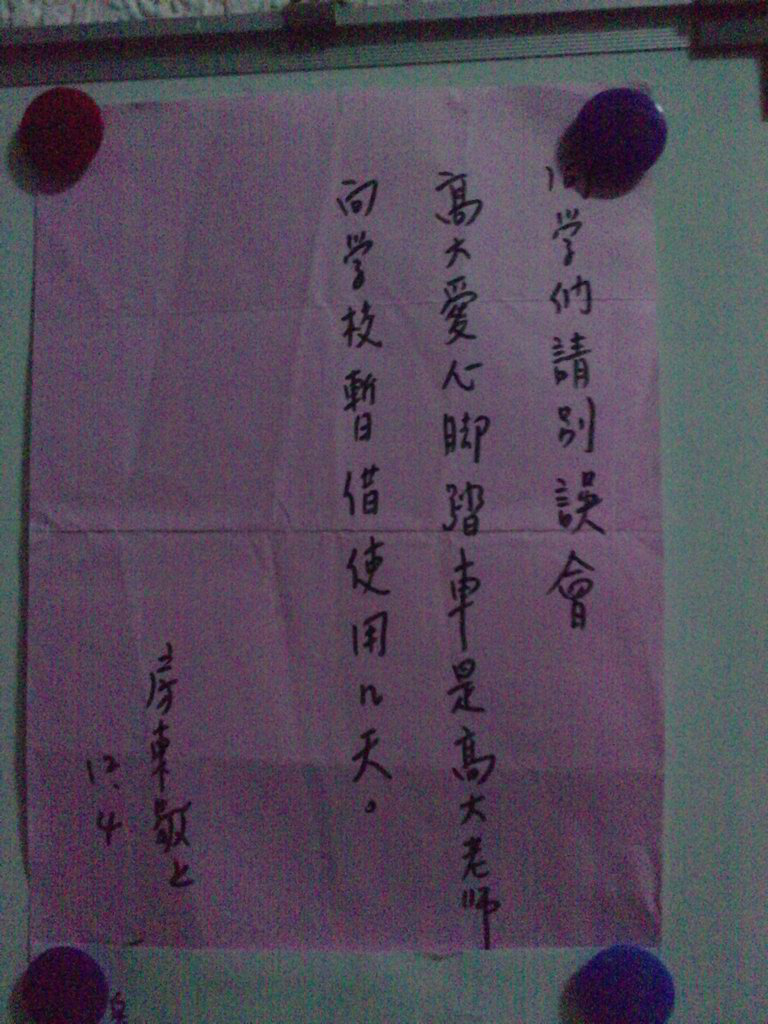 同学们請别誤會
高大愛心脚踏車是高大老师
向学校暫借使用n天。
房東敬上
12.4